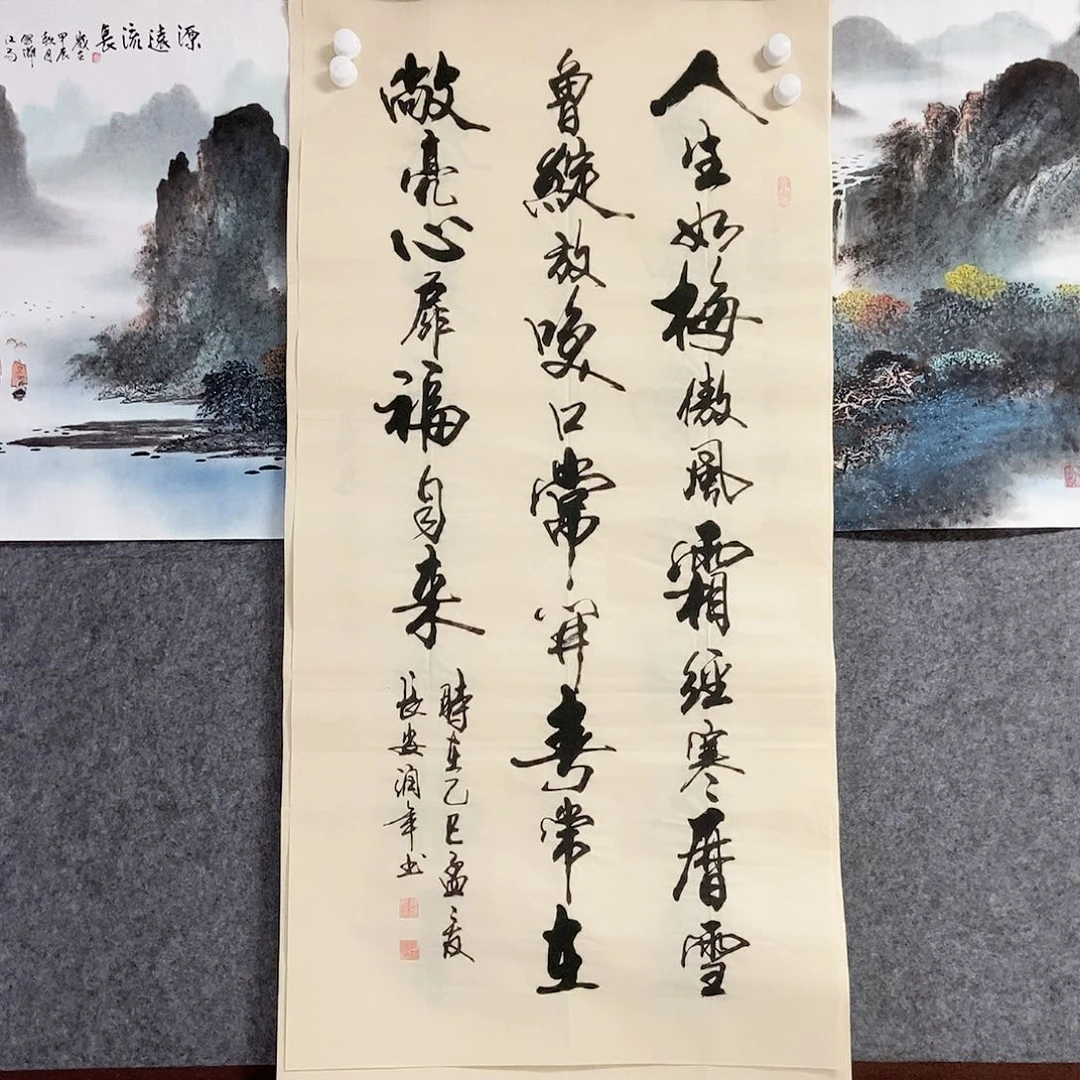 人生如梅傲風霜經寒曆雪
曾綻放咲口常開春常在
敞亮心扉福自来
時在乙巳孟夏
長安潤年书
源遠流長
歲在
甲辰
秋月